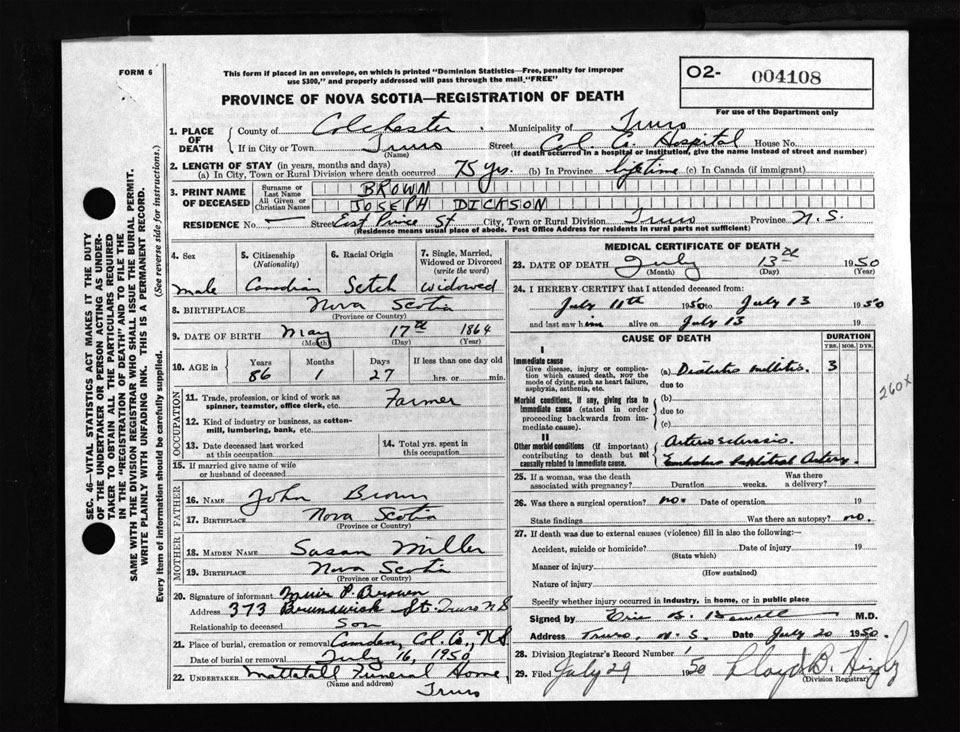 FORM 6
This form if placed in an envelope, on which is printed "Dominion Statistics—Free, penalty for improper
use $300," and properly addressed will pass through the mail "FREE"
O2- 004108
For use of the Department only
PROVINCE OF NOVA SCOTIA—REGISTRATION OF DEATH
1. PLACE OF DEATH County of Colchester. Municipality of Truro
If in City or Town Truro (Name) Street Col. Co. Hospital House No.
(If death occurred in a hospital or institution, give the name instead of street and number)
2. LENGTH OF STAY (in years, months and days)
(a) In City, Town or Rural Division where death occurred 75 yrs. (b) In Province lifetime (c) In Canada (if immigrant)
3. PRINT NAME OF DECEASED Surname or Last Name BROWN
All Given or Christian Names JOSEPH DICKSON
RESIDENCE No. — Street East Prince St City, Town or Rural Division Truro Province N.S.
(Residence means usual place of abode. Post Office Address for residents in rural parts not sufficient)
4. Sex male
5. Citizenship (Nationality) Canadian
6. Racial Origin Sctch
7. Single, Married, Widowed or Divorced (write the word) Widowed
8. BIRTHPLACE Nova Scotia
(Province or Country)
9. DATE OF BIRTH May 17th 1864
(Month) (Day) (Year)
10. AGE in Years 86 Months 1 Days 27 If less than one day old hrs. or min.
OCCUPATION
11. Trade, profession, or kind of work as spinner, teamster, office clerk, etc. Farmer
12. Kind of industry or business, as cotton-mill, lumbering, bank, etc.
13. Date deceased last worked at this occupation
14. Total yrs. spent in this occupation
15. If married give name of wife or husband of deceased
FATHER
16. NAME John Brown
17. BIRTHPLACE Nova Scotia
(Province or Country)
MOTHER
18. MAIDEN NAME Susan Miller
19. BIRTHPLACE Nova Scotia
(Province or Country)
20. Signature of informant Muir P. Brown
Address 373 Brunswick St. Truro N S
Relationship to deceased Son
21. Place of burial, cremation or removal Camden, Col. Co., N.S.
Date of burial or removal July 16, 1950
22. UNDERTAKER Mattatall Funeral Home
(Name and address) Truro
MEDICAL CERTIFICATE OF DEATH
23. DATE OF DEATH July 13th 1950
(Month) (Day) (Year)
24. I HEREBY CERTIFY that I attended deceased from:
July 11th 1950 to July 13 1950
and last saw him alive on July 13 19
CAUSE OF DEATH
DURATION
YRS. MOS. DYS.
I
Immediate cause
Give disease, injury or complication which caused death, NOT the mode of dying, such as heart failure, asphyxia, asthenia, etc.
(a) Diabetes mellitis. 3
due to
Morbid conditions, if any, giving rise to immediate cause (stated in order proceeding backwards from immediate cause).
(b)
due to
(c)
II
Other morbid conditions (if important) contributing to death but not causally related to immediate cause.
Arteriosclerosis.
Embolus Popliteal Artery.
260x
25. If a woman, was the death associated with pregnancy? Duration weeks. Was there a delivery?
26. Was there a surgical operation? no. Date of operation 19
State findings Was there an autopsy? no.
27. If death was due to external causes (violence) fill in also the following:—
Accident, suicide or homicide? Date of injury 19
(State which)
Manner of injury
(How sustained)
Nature of injury
Specify whether injury occurred in industry, in home, or in public place
Signed by Eric M.D.
Address Truro, N.S. Date July 20 1950.
28. Division Registrar's Record Number
29. Filed July 29 1950 Lloyd B.
(Division Registrar)
SEC. 46—VITAL STATISTICS ACT MAKES IT THE DUTY
OF THE UNDERTAKER OR PERSON ACTING AS UNDER-
TAKER TO OBTAIN ALL THE PARTICULARS REQUIRED
IN THE "REGISTRATION OF DEATH" AND TO FILE THE
SAME WITH THE DIVISION REGISTRAR WHO SHALL ISSUE THE BURIAL PERMIT.
WRITE PLAINLY WITH UNFADING INK. THIS IS A PERMANENT RECORD.
Every item of information should be carefully supplied. (See reverse side for instructions.)